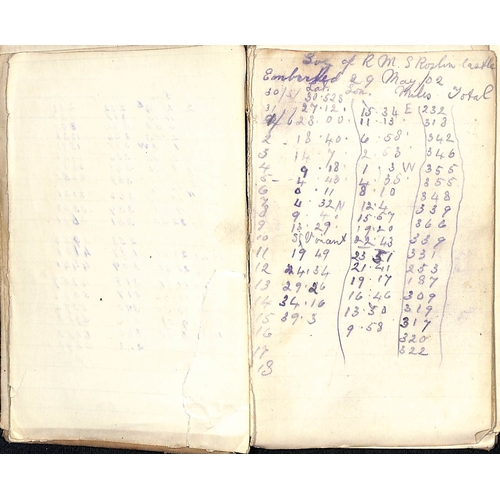 Log of R M S Roslin Castle
Embarked 29 May 02
Lat. Lon. Miles Total
30/5/ 30.52S
31/ 27.12. 15.34 E 232
1/6 23.00. 11.13 313
2 18.40. 6.58' 342
3 14.7 2.53 346
4 9.18 1.3 W 355
5 4.43 4.35 355
6 0.11 8.10 348
7 4.32 N 12.4 339
8 9.4 15.57 366
9 13.29 19.20 339
10 St Vincent 22.43 331
11 19 49 23 51 253
12 24.34 21.41 187
13 29.26 19.17 309
14 34.16 16.46 319
15 39.3 13.50 317
16 9.58 320
17 322
18